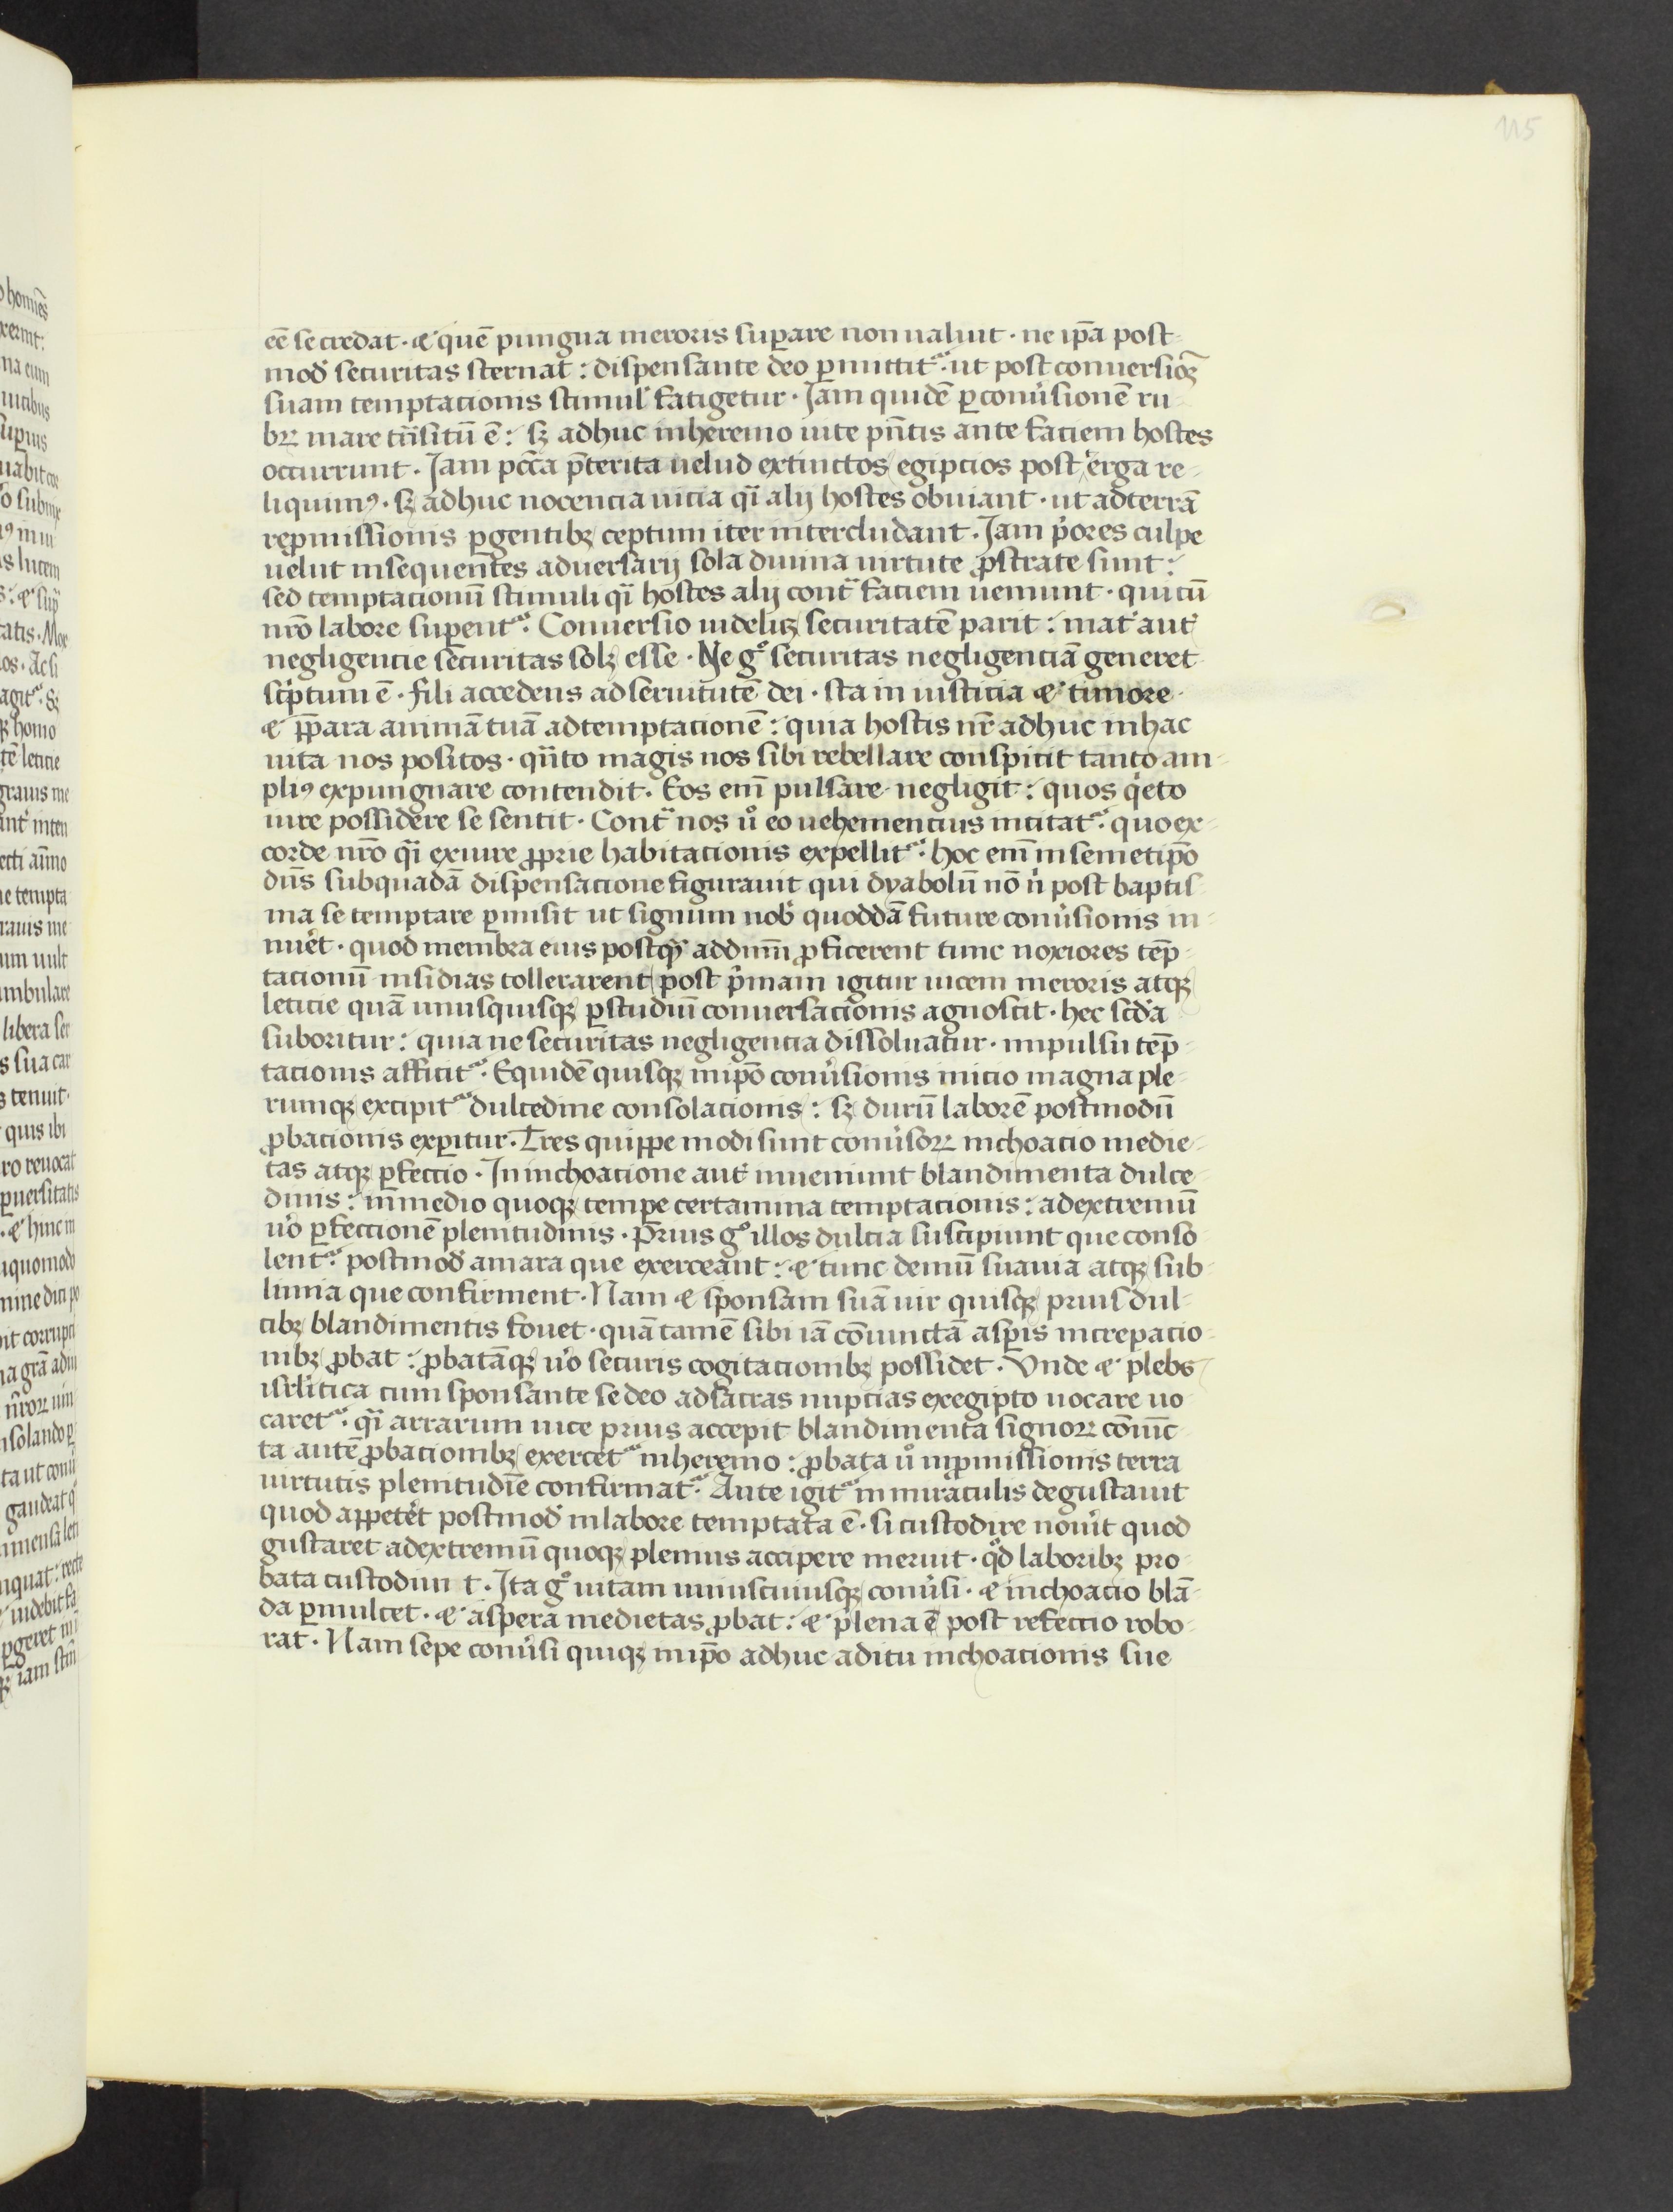 115
eē se credat · & quē pungna meroris suꝑare non ualuit · ne ip̄a post-
mod̛ securitas sternat : dispensante deo ꝑmittitᷓ · ut post conuersioꝫ
suam temptacionis stimul̛ fatigetur · Jam quidē ꝑ conưsionē ru-
bꝝ mare tn̄sitū ē : sꝫ adhuc in heremo uite pn̄tis ante faciem hostes
occurrunt · Jam pccā p̄terita uelud extinctos egipcios post ̛erga re-
liquimꝰ · sꝫ adhuc nocencia uicia qi̅ alij hostes obuiant · ut ad terrā
reꝓmissionis ꝑgentibꝫ ceptum iter intercludant · Jam p̛ores culpe
uelut insequentes aduersarij sola diuina uirtute ꝓstrate sunt :
sed temptacionū stimuli qi̅ hostes alij contᷓ faciem ueniunt · qui cū
nr̄o labore suꝑentᷓ · Conuersio uidelicꝫ securitatē parit : mat̛ aut̛
negligencie securitas solꝫ esse · Ne gͦ securitas negligenciā generet
sc̛ptum ē · fili accedens ad seruitutē dei · sta in iusticia & timore ·
& p̄para animā tuā ad temptacionē : quia hostis nr̄ adhuc in hac
uita nos positos · qn̄to magis nos sibi rebellare conspicit tanto am-
pliꝰ expungnare contendit · Eos em̄ pulsare negligit : quos q̛eto
iure possidere se sentit · Contᷓ nos uͦ eo uehemencius incitatᷓ · quo ex-
corde nr̄o qi̅ ex iure ꝓprie habitacionis expellitᷓ · hoc em̄ in semetip̄o
dn̄s sub quadā dispensacione figurauit qui dyabolū nō n̛ post baptis-
ma se temptare ꝑmisit ut signum nob̛ quoddā future conưsionis in-
nưet · quod membra eius postqᷓ addūm ꝓficerent tunc noxiores tēp-
tacionū insidias tollerarent post p̛mam igitur uicem meroris atqꝫ
leticie quā unusquisqꝫ ꝑ studiū conuersacionis agnoscit · hec sc̛da
suboritur : quia ne securitas negligencia dissoluatur · impulsu tēp-
tacionis afficitᷓ · Equidē quisqꝫ in ip̄o conưsionis inicio magna ple-
rumqꝫ excipitᷓ dulcedine consolacionis : sꝫ durū laborē postmodū
ꝓbacionis exꝑitur · Tres quippe modi sunt conưsoꝝ inchoacio medie-
tas atqꝫ ꝑfeccio · In inchoacione aut̛ inueniunt blandimenta dulce-
dinis : in medio quoqꝫ tempe certamina temptacionis : ad extremū
ưo ꝑfeccionē plenitudinis · Prius gͦ illos dulcia suscipiunt que conso-
lentᷓ · postmod̛ amara que exerceant : & tunc demū suauia atqꝫ sub-
limia que confirment · Nam & sponsam suā uir quisqꝫ prius dul-
cibꝫ blandimentis fouet · quā tamē sibi iā cōiunctā asꝑis increpacio-
nibꝫ ꝓbat : ꝓbatāqꝫ ưo securis cogitacionibꝫ possidet · Vnde & plebs
isrl̛itica cum sponsante se deo ad sacras nupcias ex egipto uocare uo-
caretᷓ · qi̅ arrarum uice prius accepit blandimenta signoꝝ cōiūc-
ta autē ꝓbacionibꝫ exercetᷓ in heremo : ꝓbata uͦ in ꝓmissionis terra
uirtutis plenitudīe confirmatᷓ · Ante igitᷓ in miraculis degustauit
quod appet̛et postmod̛ in labore temptata ē · si custodire noưit quod
gustaret ad extremū quoqꝫ plenius accipere meruit · qͦd laboribꝫ pro-
bata custodiun t · Jta gͦ uitam uniuscuiusqꝫ conưsi · & inchoacio blā-
da ꝑmulcet · & aspera medietas ꝓbat : & plena ē post refeccio robo-
rat · Nam sepe conưsi quiqꝫ in ip̄o adhuc aditu inchoacionis sue